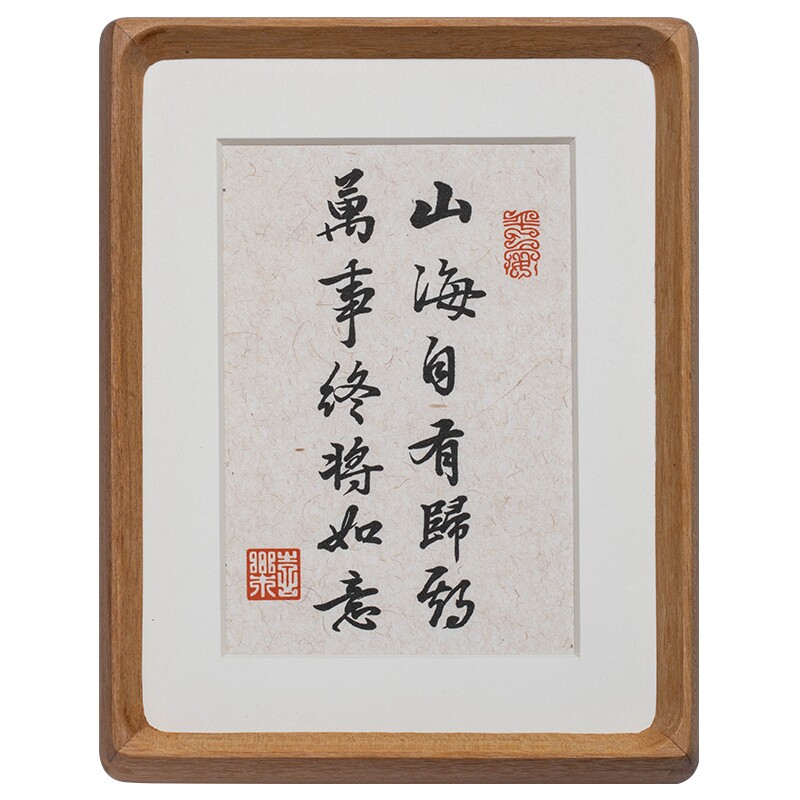 山海自有歸期
萬事終將如意
喜樂